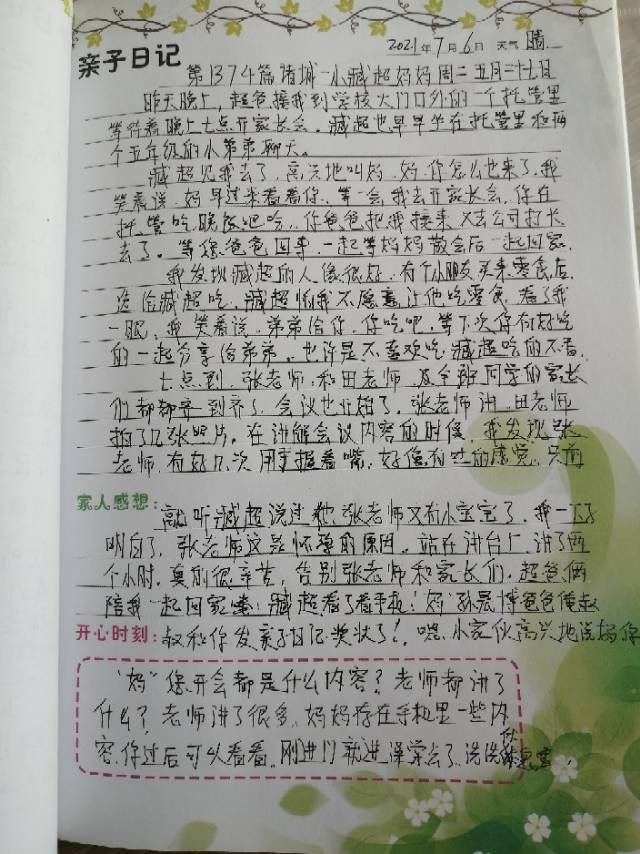 亲子日记
2021年7月6日 天气 晴
第1374篇 诸城一小臧超妈妈 周二 五月二十七日
昨天晚上，超爸接我到学校大门口外的一个托管里
等待着晚上七点开家长会。臧超也早早坐在托管里和两
个五年级的小弟弟聊天。
臧超见我去了，高兴地叫妈，妈，你怎么也来了，我
笑着说，妈早过来看看你，等一会，我去开家长会，你在
托管吃晚饭吧哈，你爸爸把我接来，又去公司打
去了。等您爸爸回来，一起等妈妈散会后一起回家。
我发现臧超的人缘很好，有个小朋友买来零食后，
送给臧超吃，臧超怕我不愿意让他吃零食，看了我
一眼，我笑着说，弟弟给你，你吃吧，等下次你有好吃
的一起分享给弟弟。也许是不喜欢吃，臧超吃的不香。
七点到，张老师，和田老师，及全班同学的家长
们都都齐到齐了，会议也开始了，张老师讲，田老师
拍了几张照片。在讲解会议内容的时候，我发现张
老师，有好几次用手握着嘴，好像有吐的感觉，
家人感想：
听臧超说过，张老师又有小宝宝了，我一下子
明白了，张老师这是怀孕的原因。站在讲台上，讲了两
个小时，真的很辛苦，告别张老师和家长们，超爸俩
陪我一起回家喽！臧超看了看手机！妈，孙晨博爸爸
开心时刻：
叔和你发亲子日记奖状了！，嘿，小家伙高兴地说妈你
“妈”您开会都是什么内容？老师都讲了
什么？老师讲了很多，妈妈存在手机里一些内
容，你过后可以看看。刚进门就进澡堂去了，洗洗